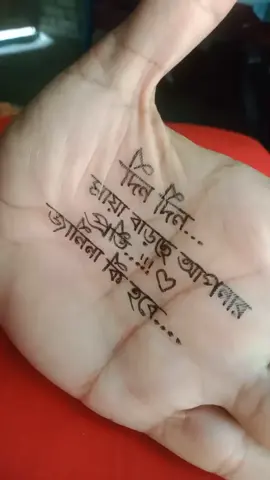 দিন দিন...
মায়া বাড়ছে আপনার
প্রতি..!!! ♡
জানিনা কি হবে....